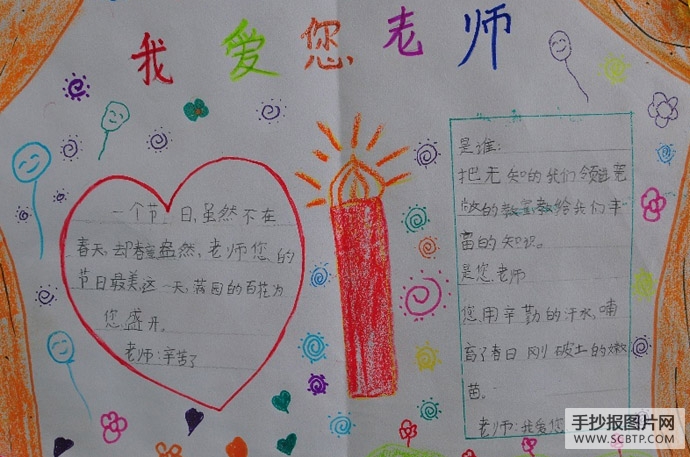 我爱您老师
一个节日,虽然不在
春天,却春意盎然,老师您的
节日最美这一天,满园的百花为
您盛开。
老师:辛苦了
是谁:
把无知的我们领进宽
敞的教室教给我们丰
富的知识。
是您老师
您用辛勤的汗水,哺
育了春日刚破土的嫩
苗。
老师:我爱您
手抄报图片网
WWW.SCBTP.COM